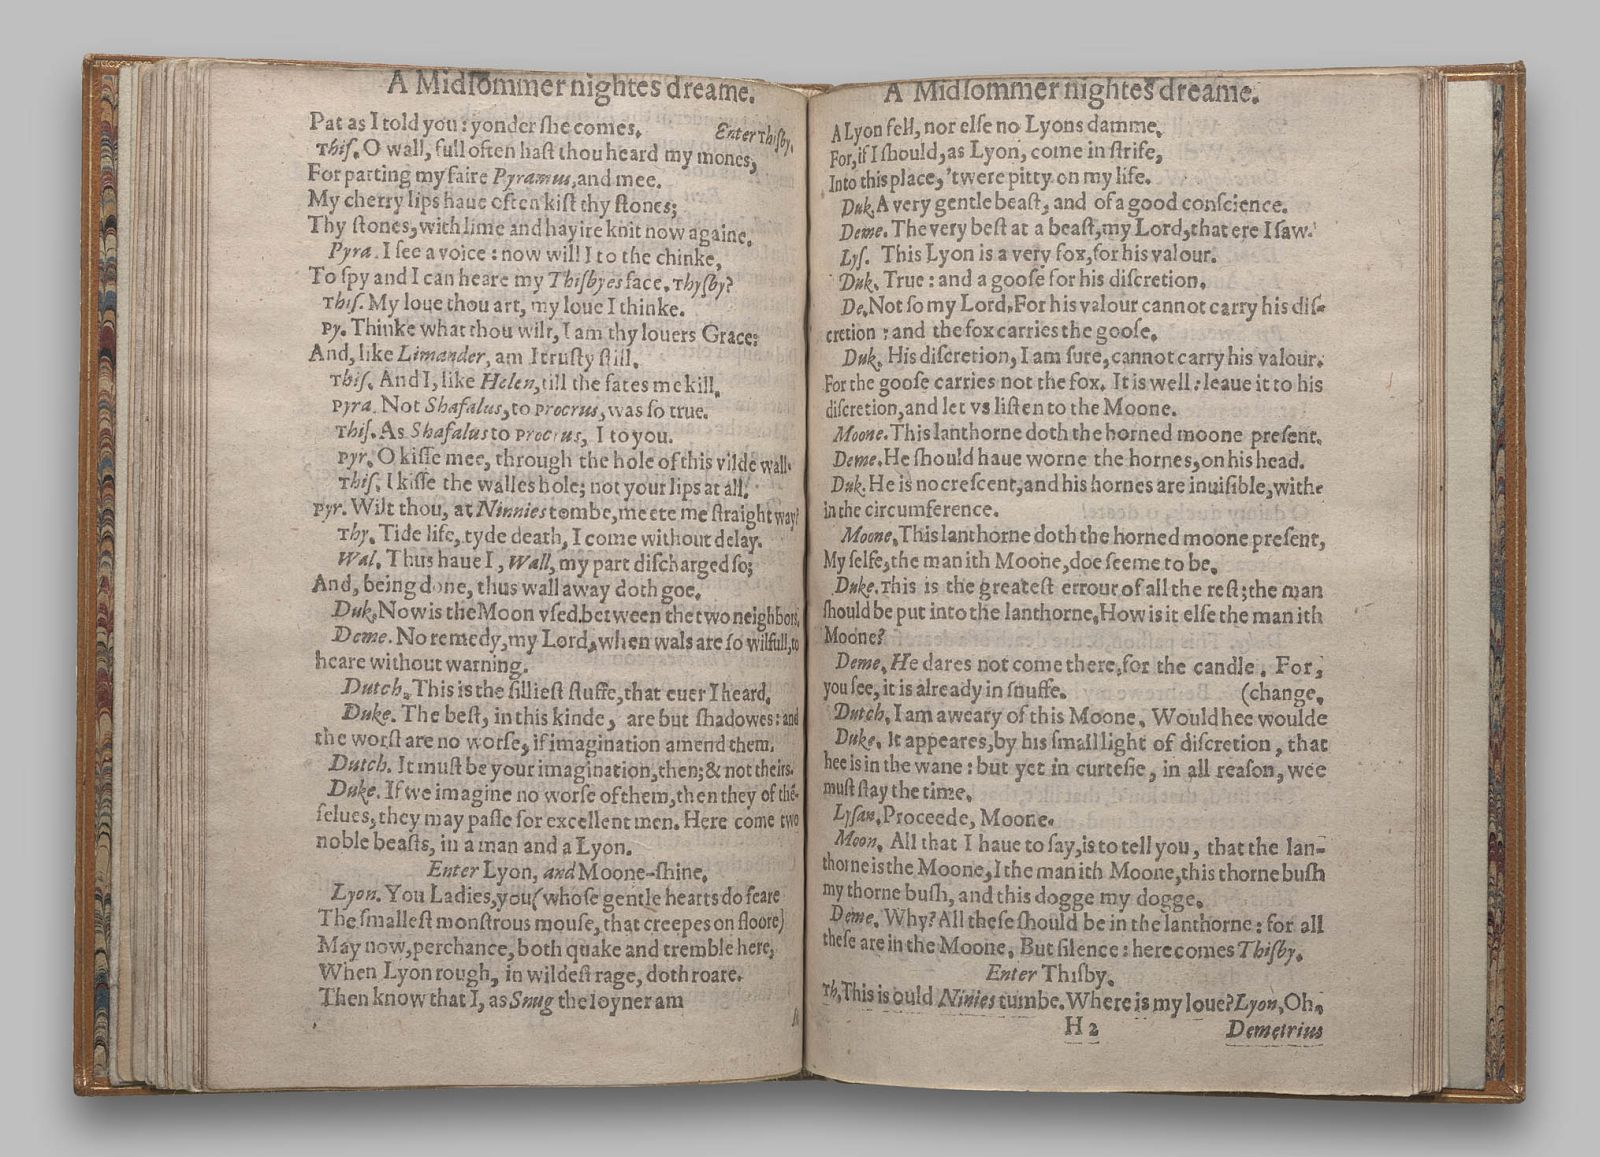 A Midſommer nightes dreame.
Pat as I told you: yonder ſhe comes. Enter Thiſby.
Thiſ. O wall, full often haſt thou heard my mones,
For parting my faire Pyramus, and mee.
My cherry lips haue often kiſt thy ſtones;
Thy ſtones, with lime and hayire knit now againe.
Pyra. I ſee a voice: now will I to the chinke,
To ſpy and I can heare my Thiſbyes face. Thyſby?
Thiſ. My loue thou art, my loue I thinke.
Py. Thinke what thou wilt, I am thy louers Grace:
And, like Limander, am I truſty ſtill.
Thiſ. And I, like Helen, till the fates me kill.
Pyra. Not Shafalus, to Procrus, was ſo true.
Thiſ. As Shafalus to Procrus, I to you.
Pyr. O kiſſe mee, through the hole of this vilde wall.
Thiſ. I kiſſe the walles hole; not your lips at all.
Pyr. Wilt thou, at Ninnies tombe, meete me ſtraight way?
Thy. Tide life, tyde death, I come without delay.
Wal. Thus haue I, Wall, my part diſcharged ſo;
And, being done, thus wall away doth goe.
Duk. Now is the Moon vſed between the two neighbors.
Deme. No remedy, my Lord, when wals are ſo wilfull, to
heare without warning.
Dutch. This is the ſillieſt ſtuffe, that euer I heard.
Duke. The beſt, in this kinde, are but ſhadowes: and
the worſt are no worſe, if imagination amend them.
Dutch. It muſt be your imagination, then; & not theirs.
Duke. If we imagine no worſe of them, then they of thē-
ſelues, they may paſſe for excellent men. Here come two
noble beaſts, in a man and a Lyon.
Enter Lyon, and Moone-ſhine.
Lyon. You Ladies, you (whoſe gentle hearts do feare
The ſmalleſt monſtrous mouſe, that creepes on floore)
May now, perchance, both quake and tremble here,
When Lyon rough, in wildeſt rage, doth roare.
Then know that I, as Snug the Ioyner am
A
A Midſommer nightes dreame.
A Lyon fell, nor elſe no Lyons damme.
For, if I ſhould, as Lyon, come in ſtrife,
Into this place, 'twere pitty on my life.
Duk. A very gentle beaſt, and of a good conſcience.
Deme. The very beſt at a beaſt, my Lord, that ere I ſaw.
Lyſ. This Lyon is a very fox, for his valour.
Duk. True: and a gooſe for his diſcretion.
De. Not ſo my Lord. For his valour cannot carry his diſ-
cretion: and the fox carries the gooſe.
Duk. His diſcretion, I am ſure, cannot carry his valour.
For the gooſe carries not the fox. It is well: leaue it to his
diſcretion, and let vs liſten to the Moone.
Moone. This lanthorne doth the horned moone preſent.
Deme. He ſhould haue worne the hornes, on his head.
Duk. He is no creſcent, and his hornes are inuiſible, with-
in the circumference.
Moone. This lanthorne doth the horned moone preſent,
My ſelfe, the man ith Moone, doe ſeeme to be.
Duke. This is the greateſt errour of all the reſt; the man
ſhould be put into the lanthorne. How is it elſe the man ith
Moone?
Deme. He dares not come there, for the candle. For,
you ſee, it is already in ſnuffe. (change.
Dutch. I am aweary of this Moone. Would hee woulde
Duke. It appeares, by his ſmall light of diſcretion, that
hee is in the wane: but yet in curteſie, in all reaſon, wee
muſt ſtay the time.
Lyſan. Proceede, Moone.
Moon. All that I haue to ſay, is to tell you, that the lan-
thorne is the Moone, I the man ith Moone, this thorne buſh
my thorne buſh, and this dogge my dogge.
Deme. Why? All theſe ſhould be in the lanthorne: for all
theſe are in the Moone. But ſilence: here comes Thiſby.
Enter Thiſby.
Th. This is ould Ninies tumbe. Where is my loue? Lyon. Oh.
H 2 Demetrius